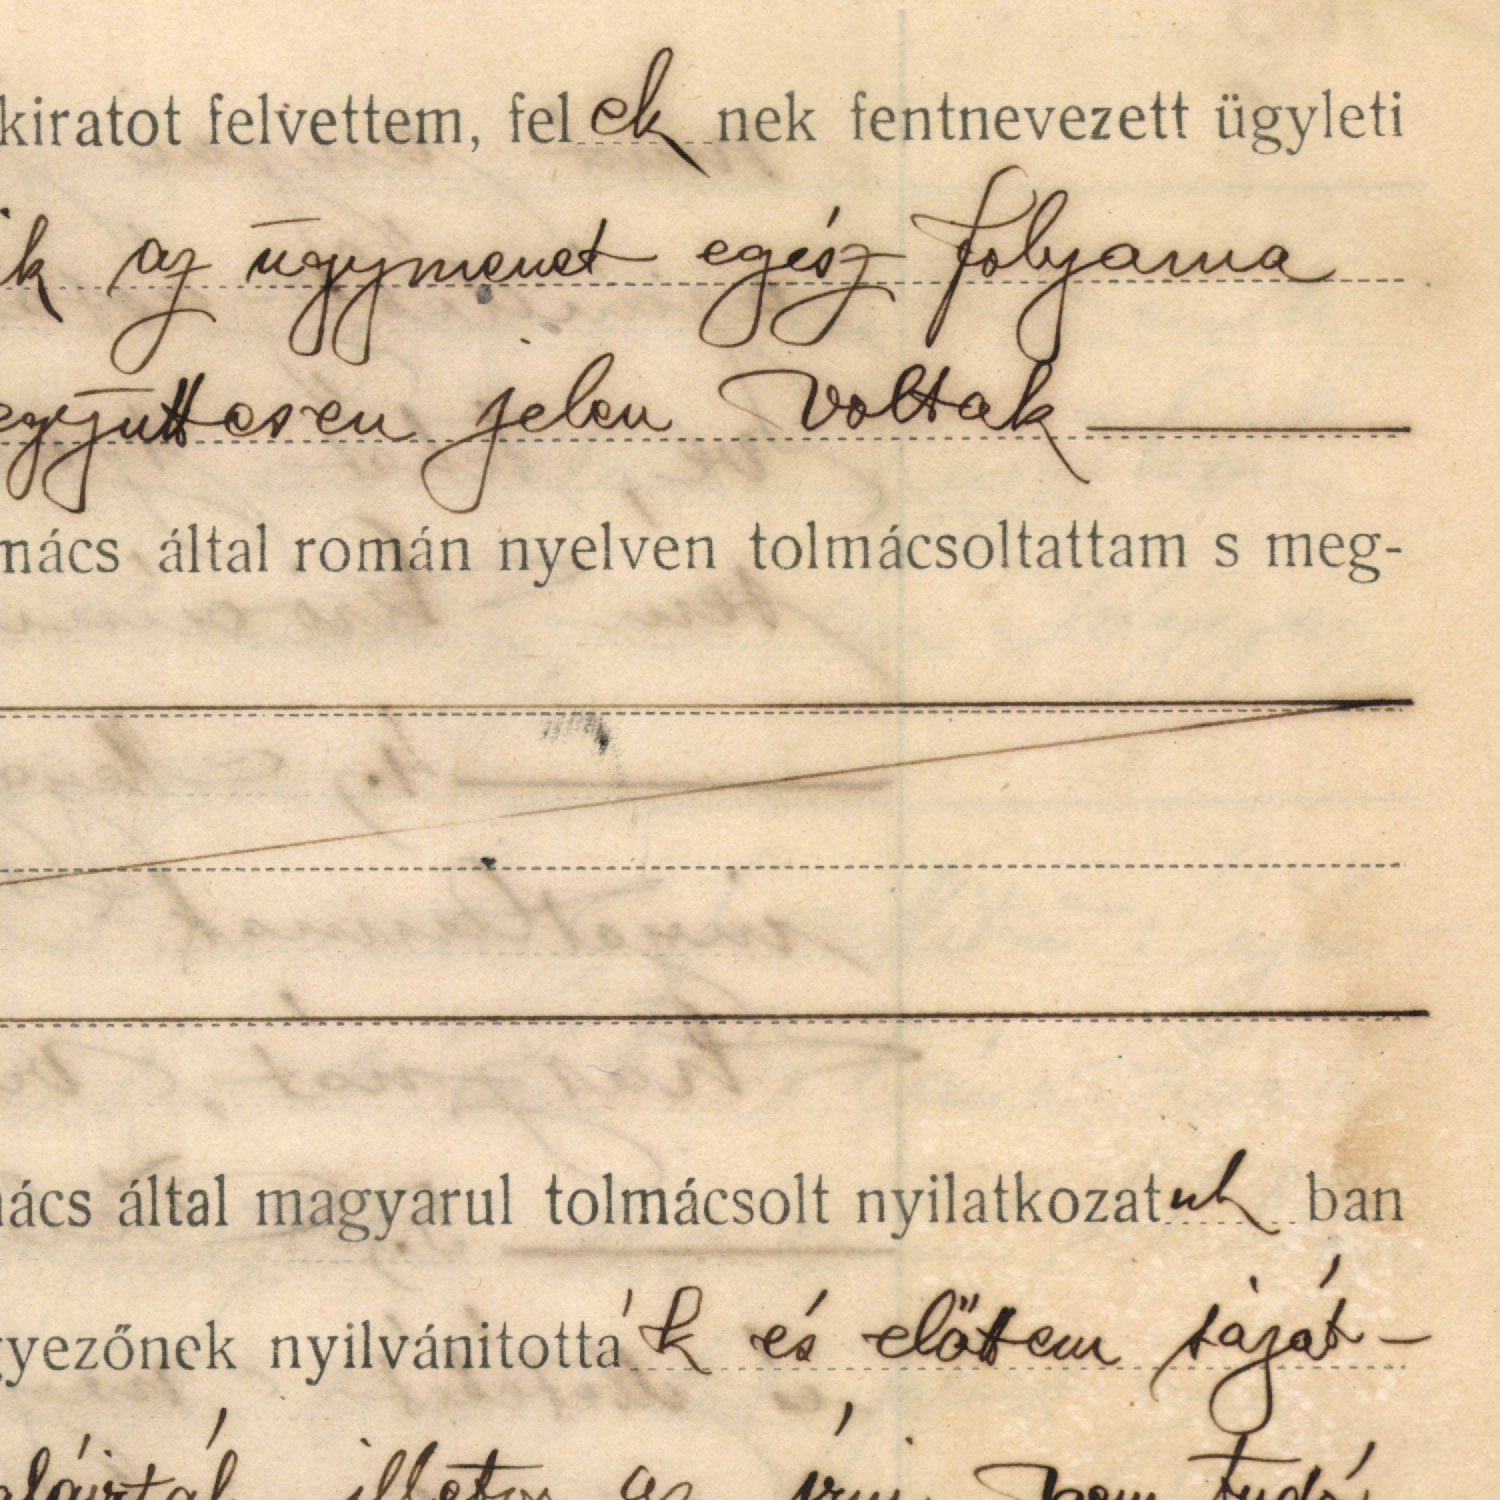 kiratot felvettem, felek nek fentnevezett ügyleti
ik az ügymenet egész folyama
együttesen jelen voltak
mács által román nyelven tolmácsoltattam s meg-
mács által magyarul tolmácsolt nyilatkozatuk ban
gyezőnek nyilvánitották és előttem saját-
aláirták illetve az irni nem tudó